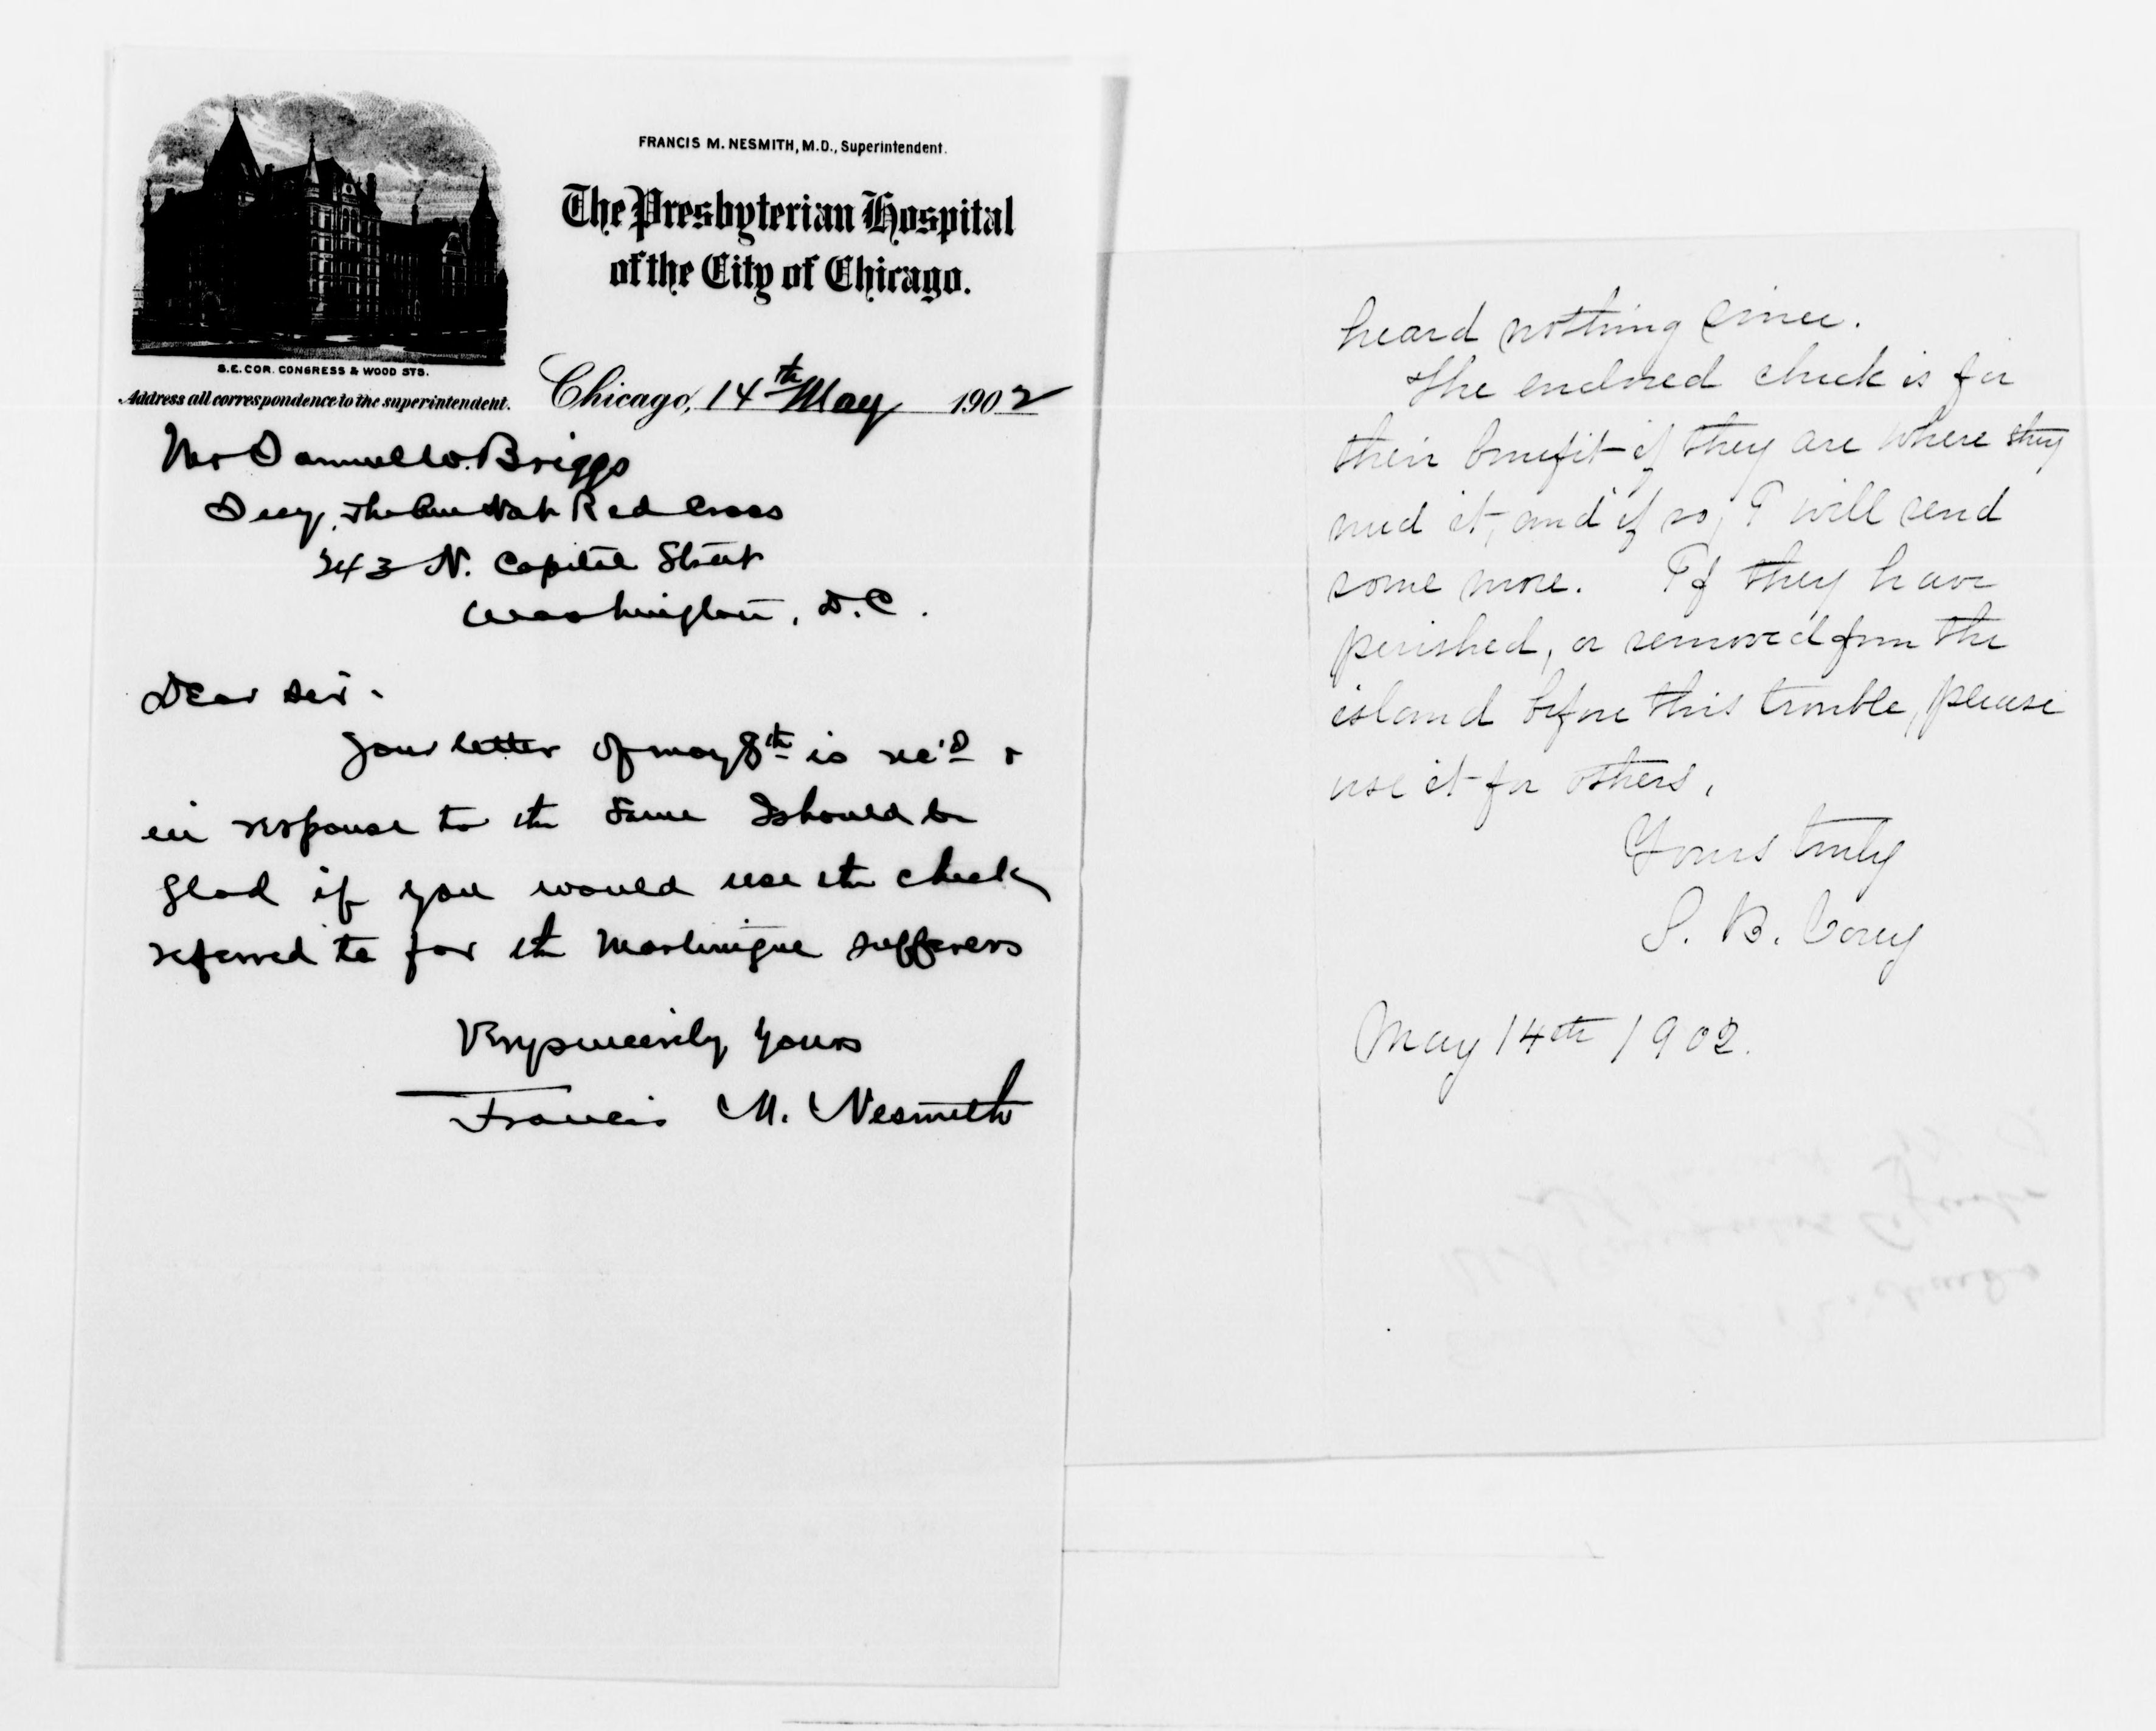 FRANCIS M. NESMITH, M.D., Superintendent.
The Presbyterian Hospital
of the City of Chicago.
S.E. COR. CONGRESS & WOOD STS.
Address all correspondence to the superintendent.
Chicago, 14th May 1902
Mr Samuel W. Briggs
Secy, The Am Nat Red Cross
243 N. Capital Street
Washington, D.C.
Dear Sir -
Your letter of May 8th is rec'd &
in response to the same I should be
glad if you would use the check
referred to for the Martinique sufferers
Very sincerely yours
Francis M. Nesmith
heard nothing since.
The enclosed check is for
their benefit if they are where they
need it, and if so, I will send
some more. If they have
perished, or removed from the
island before this trouble, please
use it for others.
Yours truly
S. B. Corey
May 14th 1902.